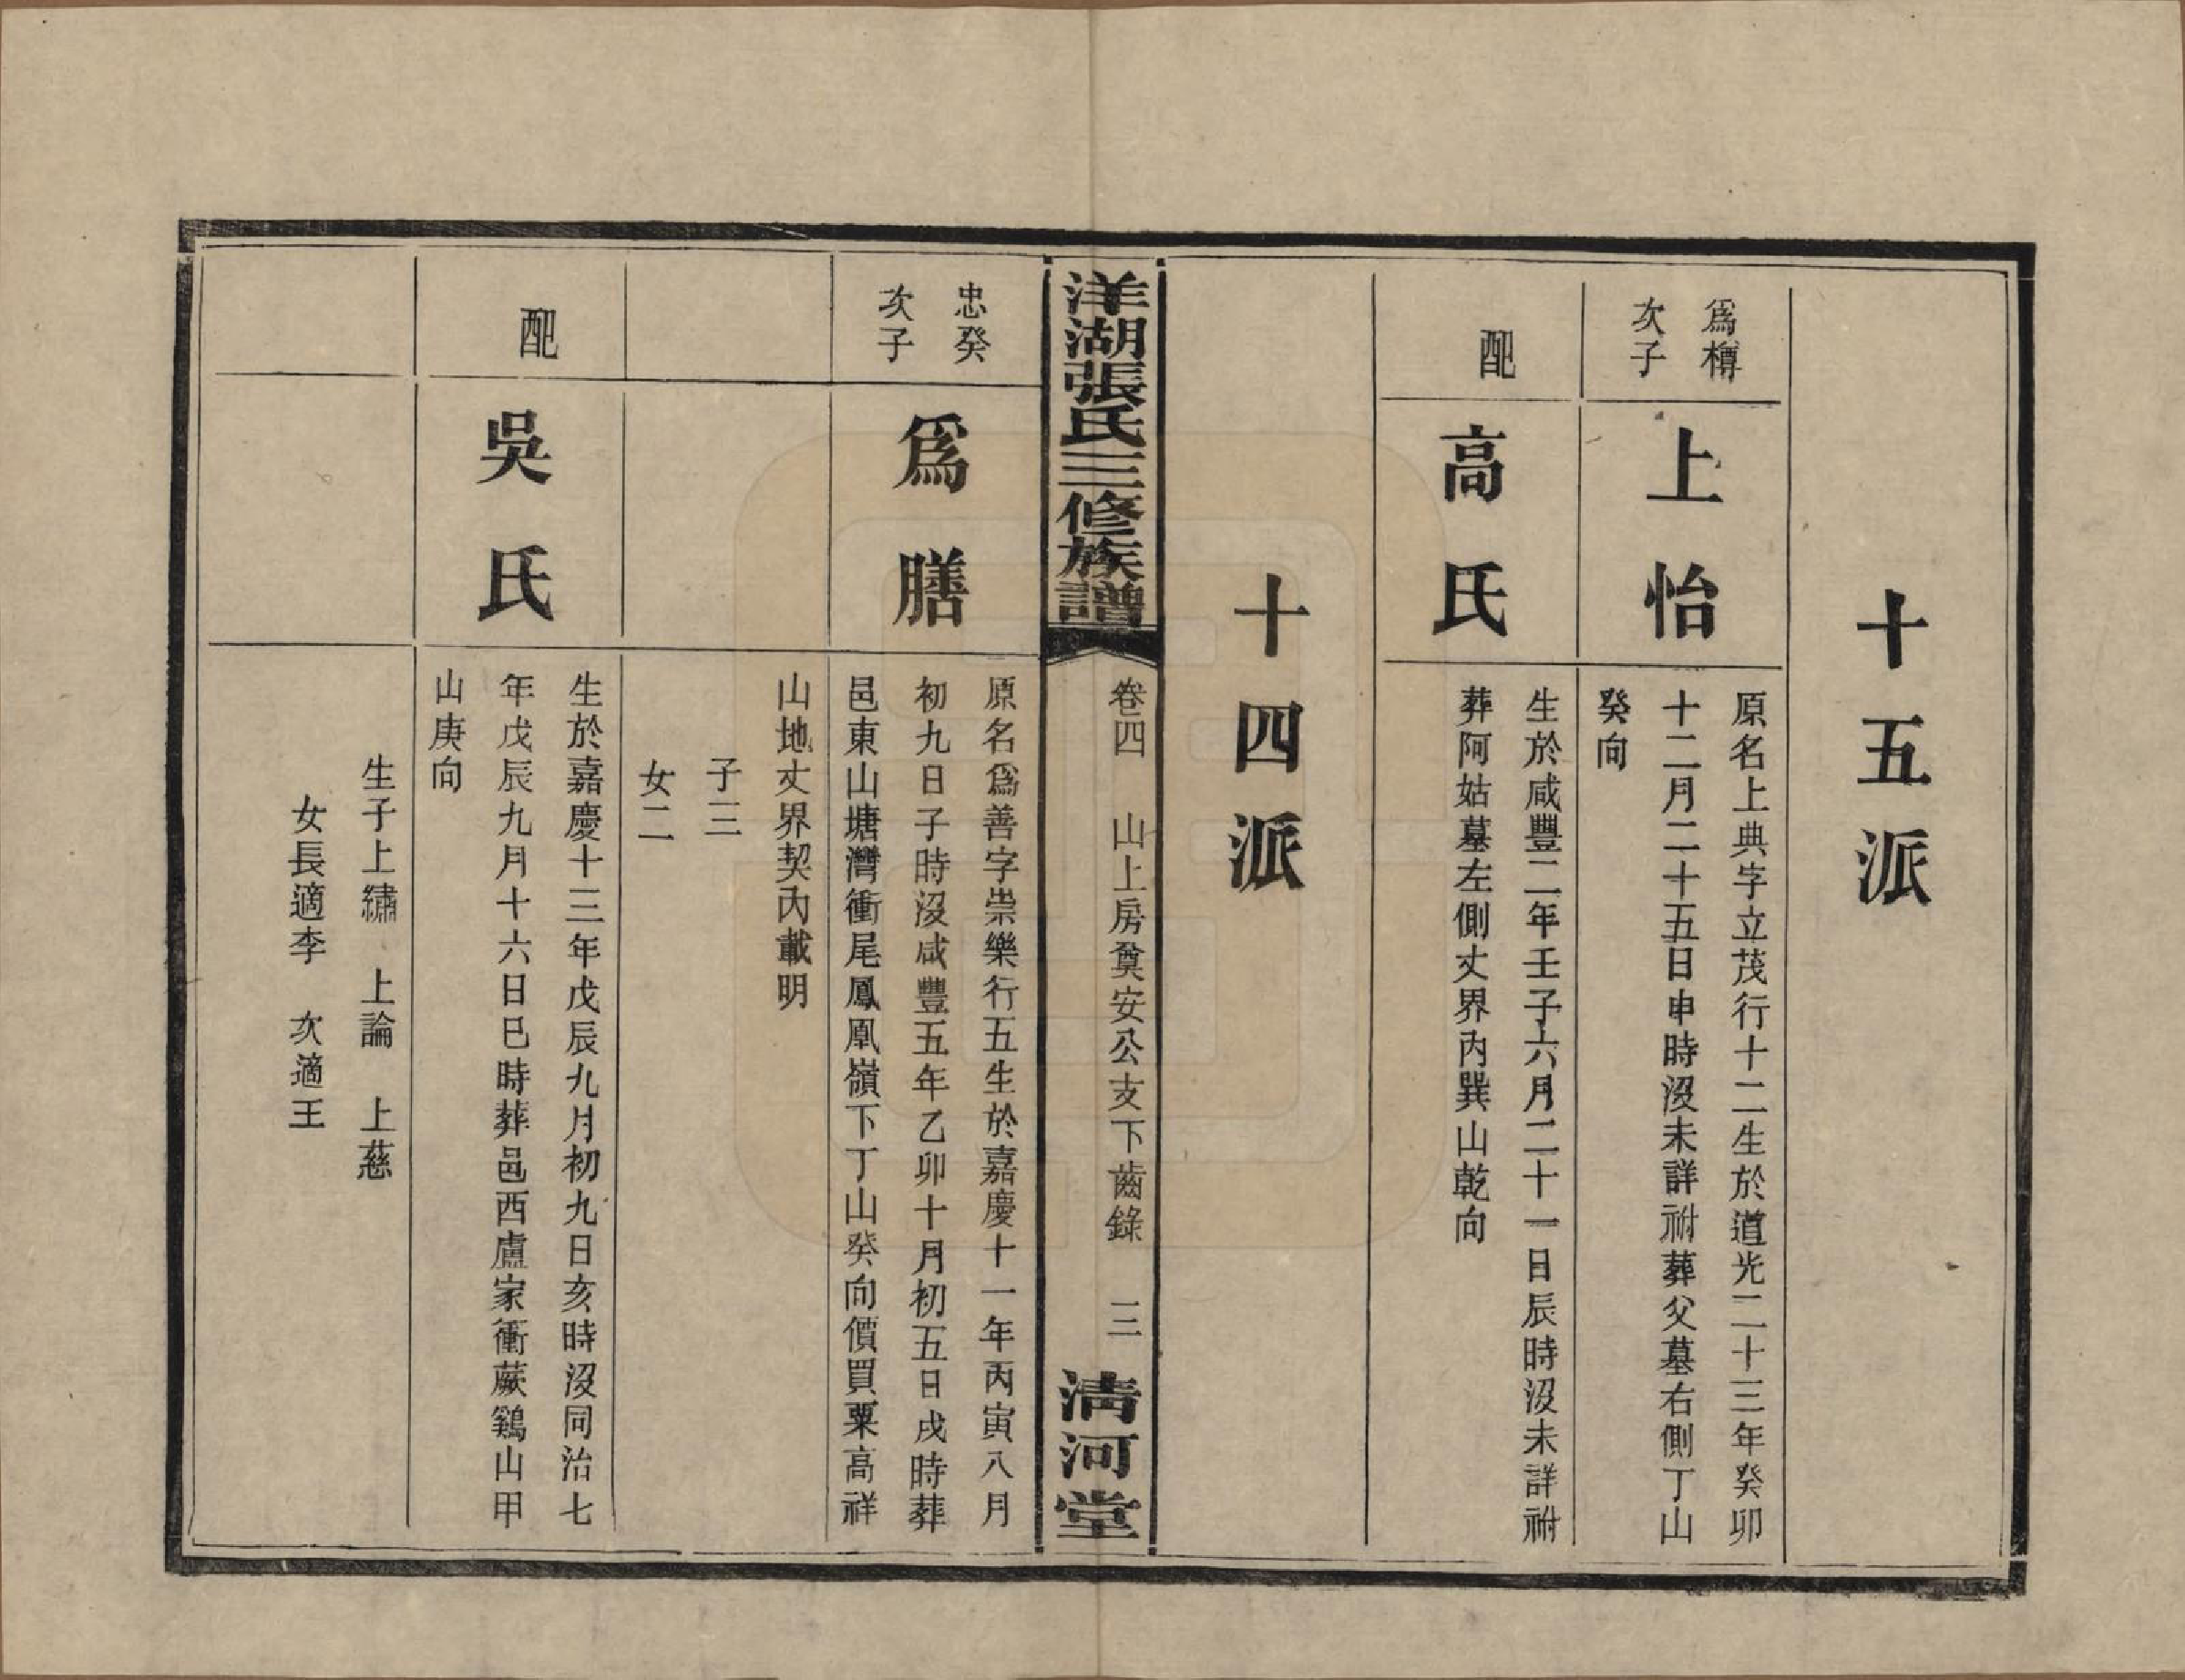 十五派
爲樽
次子
上怡
原名上典字立茂行十二生於道光二十三年癸卯
十二月二十五日申時沒未詳祔葬父墓右側丁山
癸向
配
高氏
生於咸豐二年壬子六月二十一日辰時沒未詳祔
葬阿姑墓左側丈界內巽山乾向
十四派
洋湖張氏三修族譜
卷四 山上房奠安公支下齒錄 三
清河堂
忠癸
次子
爲膳
原名爲善字崇樂行五生於嘉慶十一年丙寅八月
初九日子時沒咸豐五年乙卯十月初五日戌時葬
邑東山塘灣衝尾鳳凰嶺下丁山癸向價買粟高祥
山地丈界契內載明
子三
女二
配
吳氏
生於嘉慶十三年戊辰九月初九日亥時沒同治七
年戊辰九月十六日巳時葬邑西盧家衝蕨鷄山甲
山庚向
生子上繡 上論 上蕬
女長適李 次適王